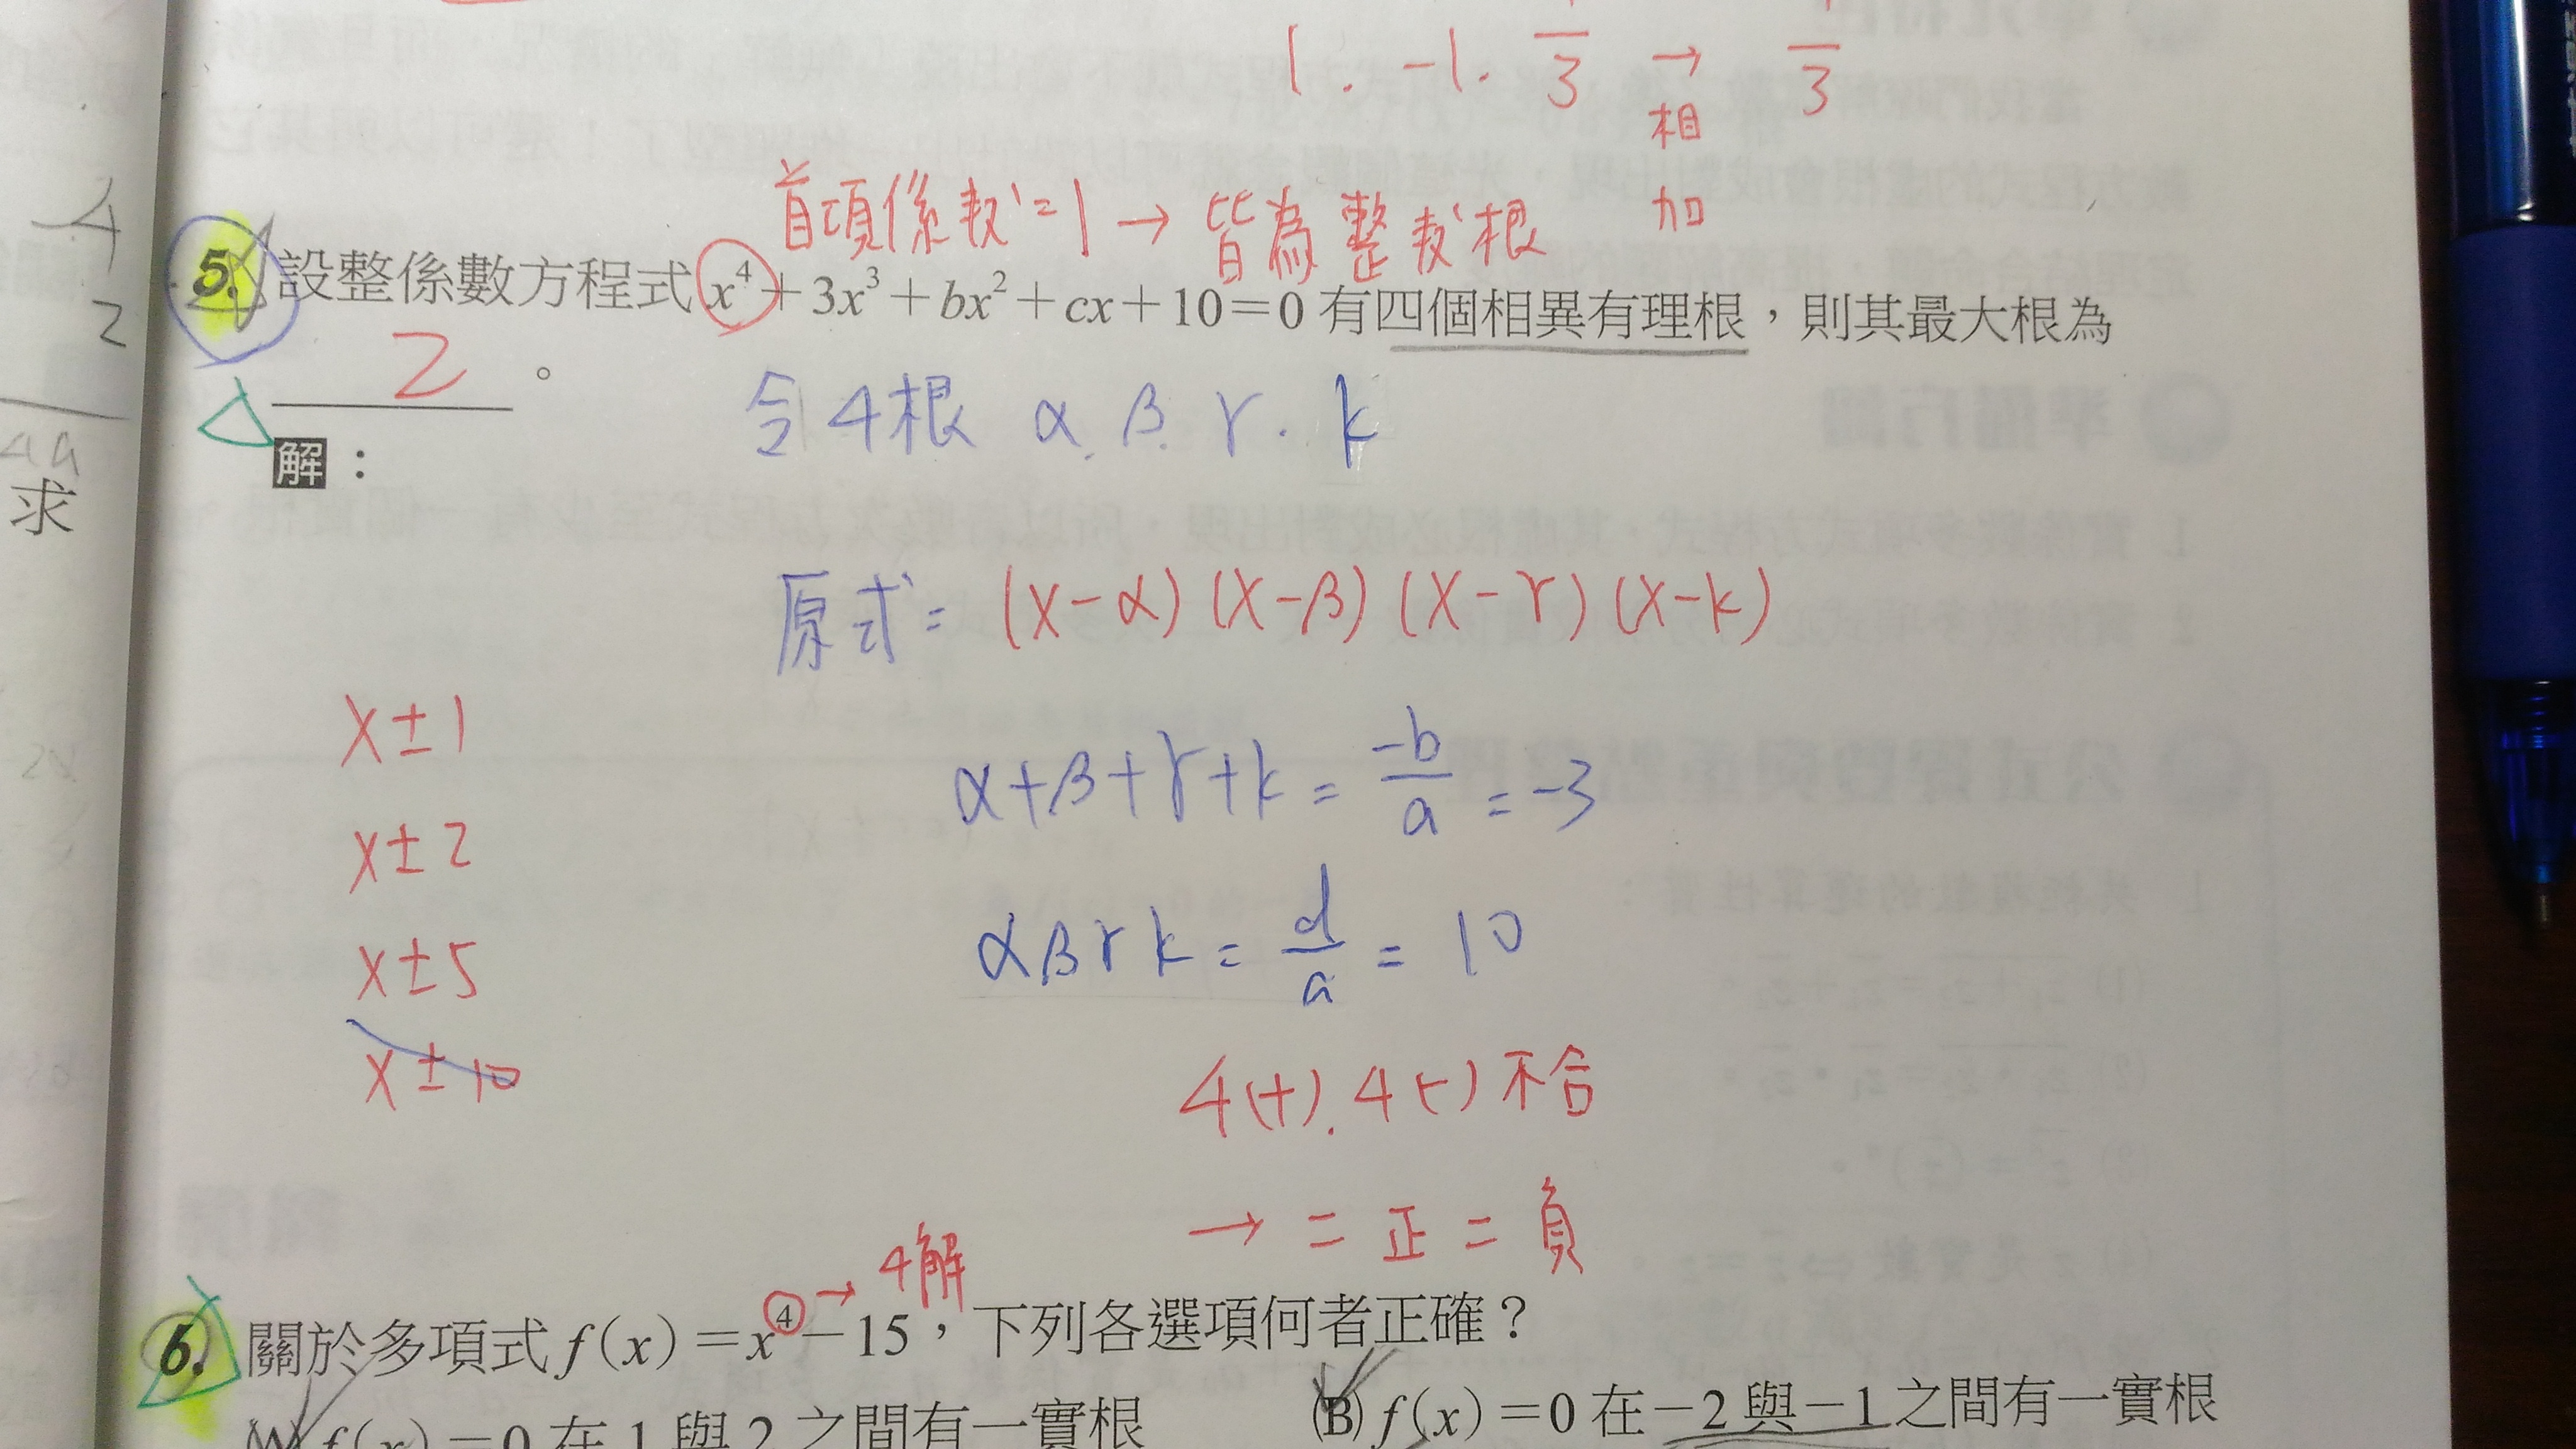 1 . -1 . 1/3 → 1/3
相
加
首項係數=1 → 皆為整數根
5. 設整係數方程式 x⁴+3x³+bx²+cx+10=0 有四個相異有理根，則其最大根為
2 。
令4根 α. β. γ. k
解：
原式= (x-α) (x-β) (x-γ) (x-k)
x±1
α+β+γ+k = -b/a = -3
x±2
αβγk = d/a = 10
x±5
x±10
4(+). 4(-) 不合
→ 二正二負
→ 4解
6. 關於多項式 f(x)=x⁴-15，下列各選項何者正確？
(A) f(x)=0 在 1 與 2 之間有一實根 (B) f(x)=0 在 -2 與 -1 之間有一實根
4
2
4a
求